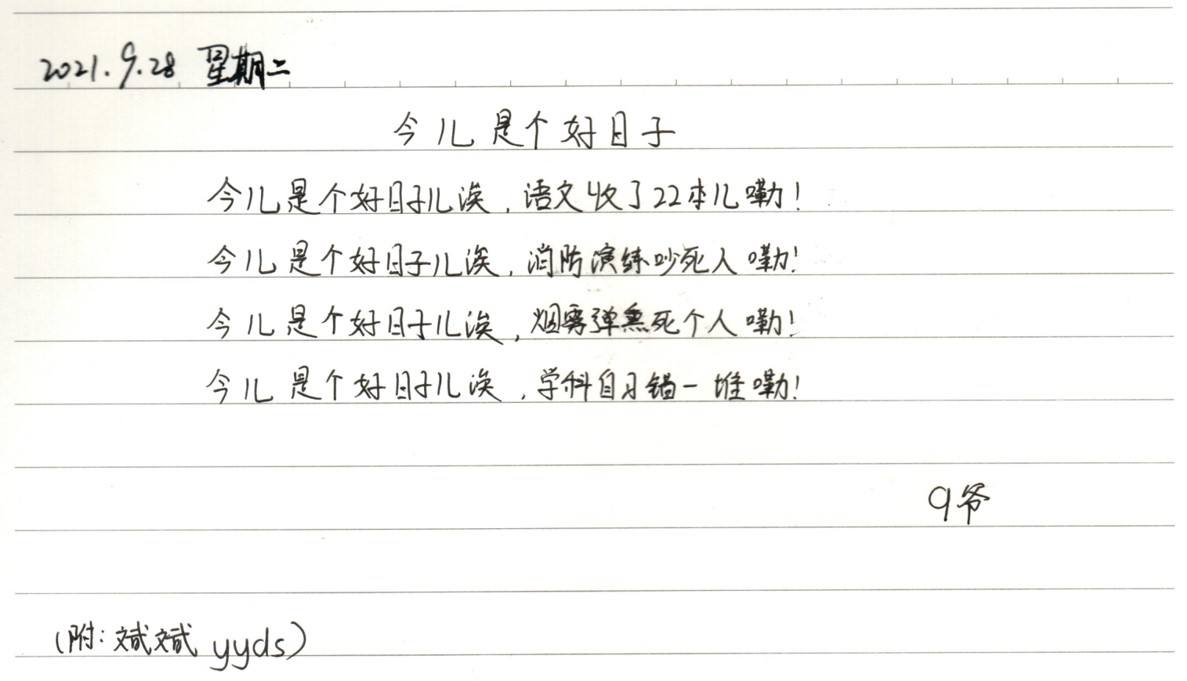 2021.9.28 星期二
今儿是个好日子
今儿是个好日子儿涘,语文收了22本儿嘞!
今儿是个好日子儿涘,消防演练吵死人嘞!
今儿是个好日子儿涘,烟雾弹熏死个人嘞!
今儿是个好日子儿涘,学科自习错一堆嘞!
9爷
(附:斌斌 yyds)